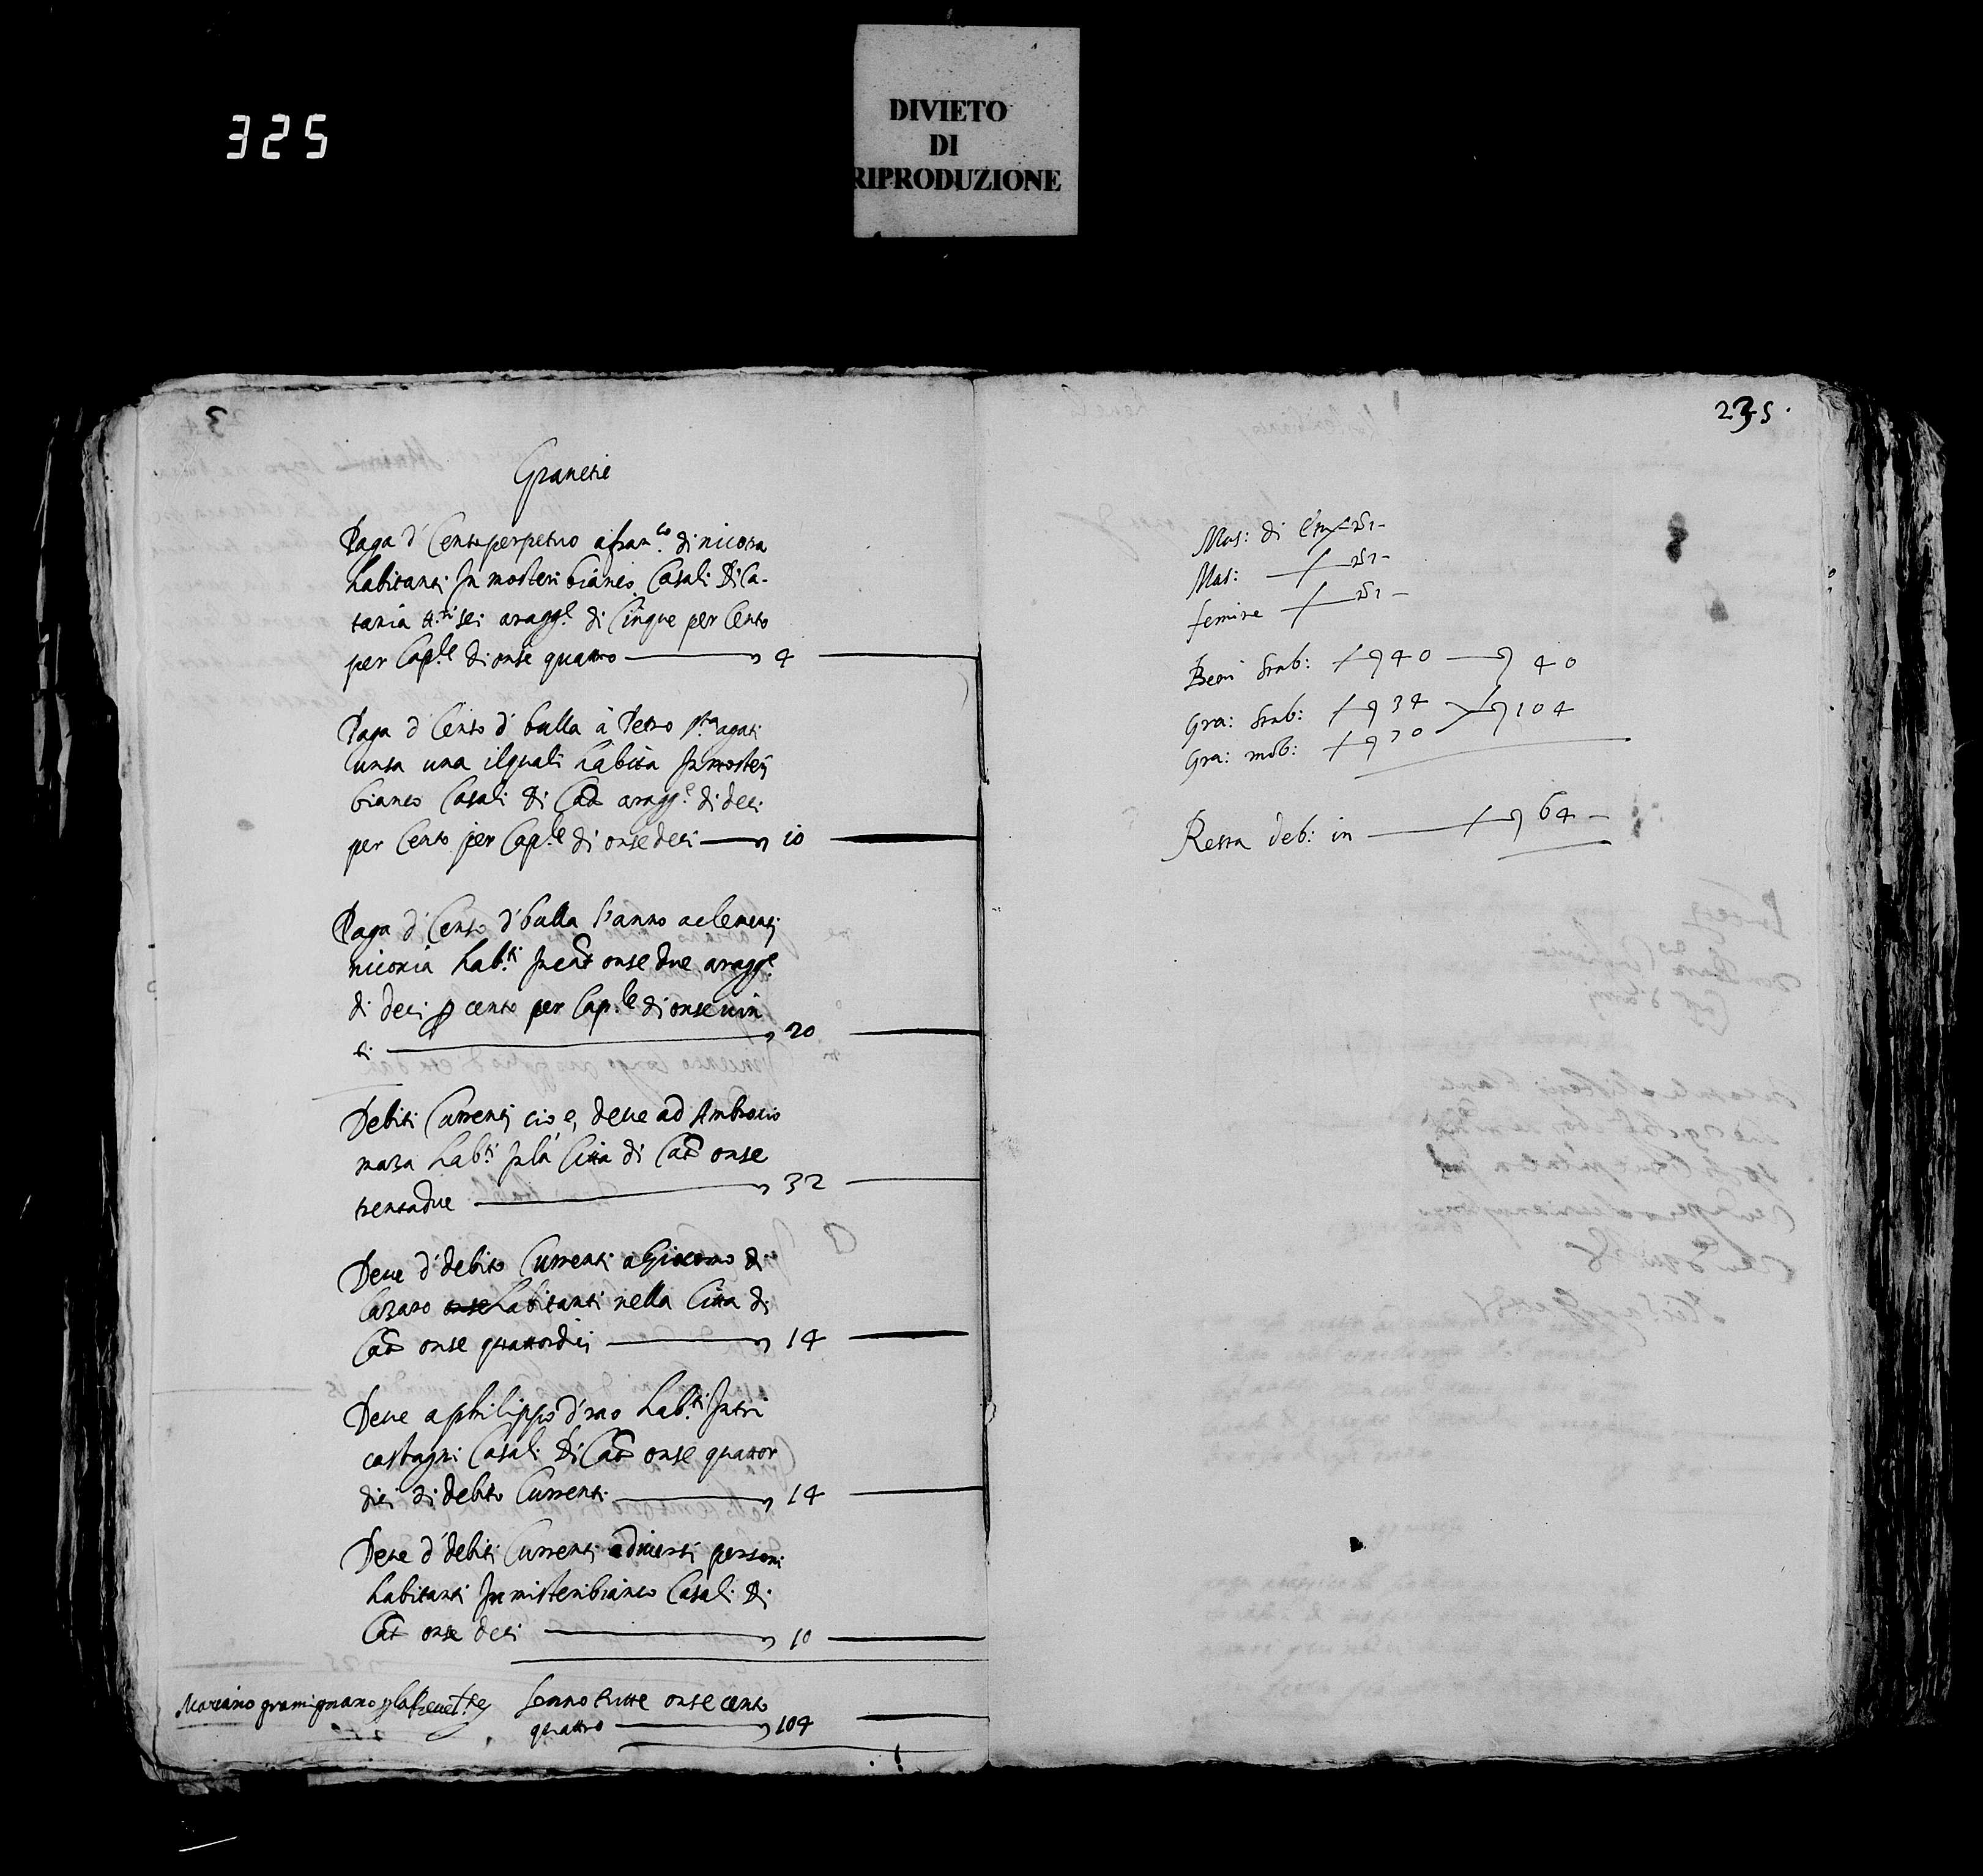 325
DIVIETO
DI
RIPRODUZIONE
3
Gravetie
Paga d' Censo perpetuo a fran.co di nicora
habitanti In mosteri bianco Casali di Ca-
tania tt.rì sei aragg.e di Cinque per Cento
per Cap.le di onse quattro 4
Paga d' Censo d' bulla à Petro agati
unsa una il quali habita In mosterj
bianco Casali di Cat.a aragg.e di deci
per Cento per Cap.le di onse deci 10
Paga d' Censo d' bulla l'anno a clementj
nicoxia hab.ti In cat.a onse due aragg.e
di deci p cento per Cap.le di onse vin
ti 20
Debiti Currentj cio e, deve ad Ambrocio
maza hab.ti In la Citta di Cat.a onse
trentadue 32
Deve d' debito Currenti a Giacomo di
Cazaro onse habitanti nella Citta di
Cat.a onse quattordici 14
Deve a philippo d'rao hab.ti In tri
castagni Casali di Cat.a onse quattor
dici di debito Currenti 14
Deve d' debiti Currenti a diversi personi
habitanti In misteribianco Casali di
Cat.a onse deci 10
Mariano gramignano
sonno tutte onse cento
quattro 104
235.
Mas: di
Mas:
femine
Beni stab: 40 40
Gra: stab: 34 104
Gra: mob: 70
Resta deb: in 64